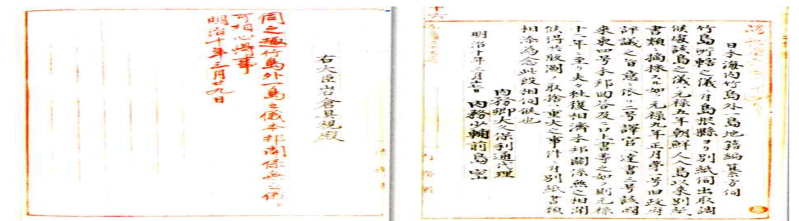 日本海内竹島外一島地籍編纂方伺
竹島所轄之儀ニ付島根縣ヨリ別紙伺出取調
候處該島之儀ハ元禄五年朝鮮人入島以来別紙
書類ニ摘採スル如ク元禄九年正月第一号旧政府
評議之旨意ニ依リ二号譯官ヘ達書三号該國
来柬四号本邦回答及ヒ口上書等之如ク則元禄
十二年ニ至リ夫々往復相済本邦關係無之相聞
候得共版圖ノ取捨ハ重大之事件ニ付別紙書類
相添為念此段相伺候也
内務卿大久保利通代理
明治十年三月十七日 内務少輔前島密
十六
右大臣岩倉具視殿
伺之趣竹島外一島之儀本邦關係無之儀ト
可相心得事
明治十年三月廿九日